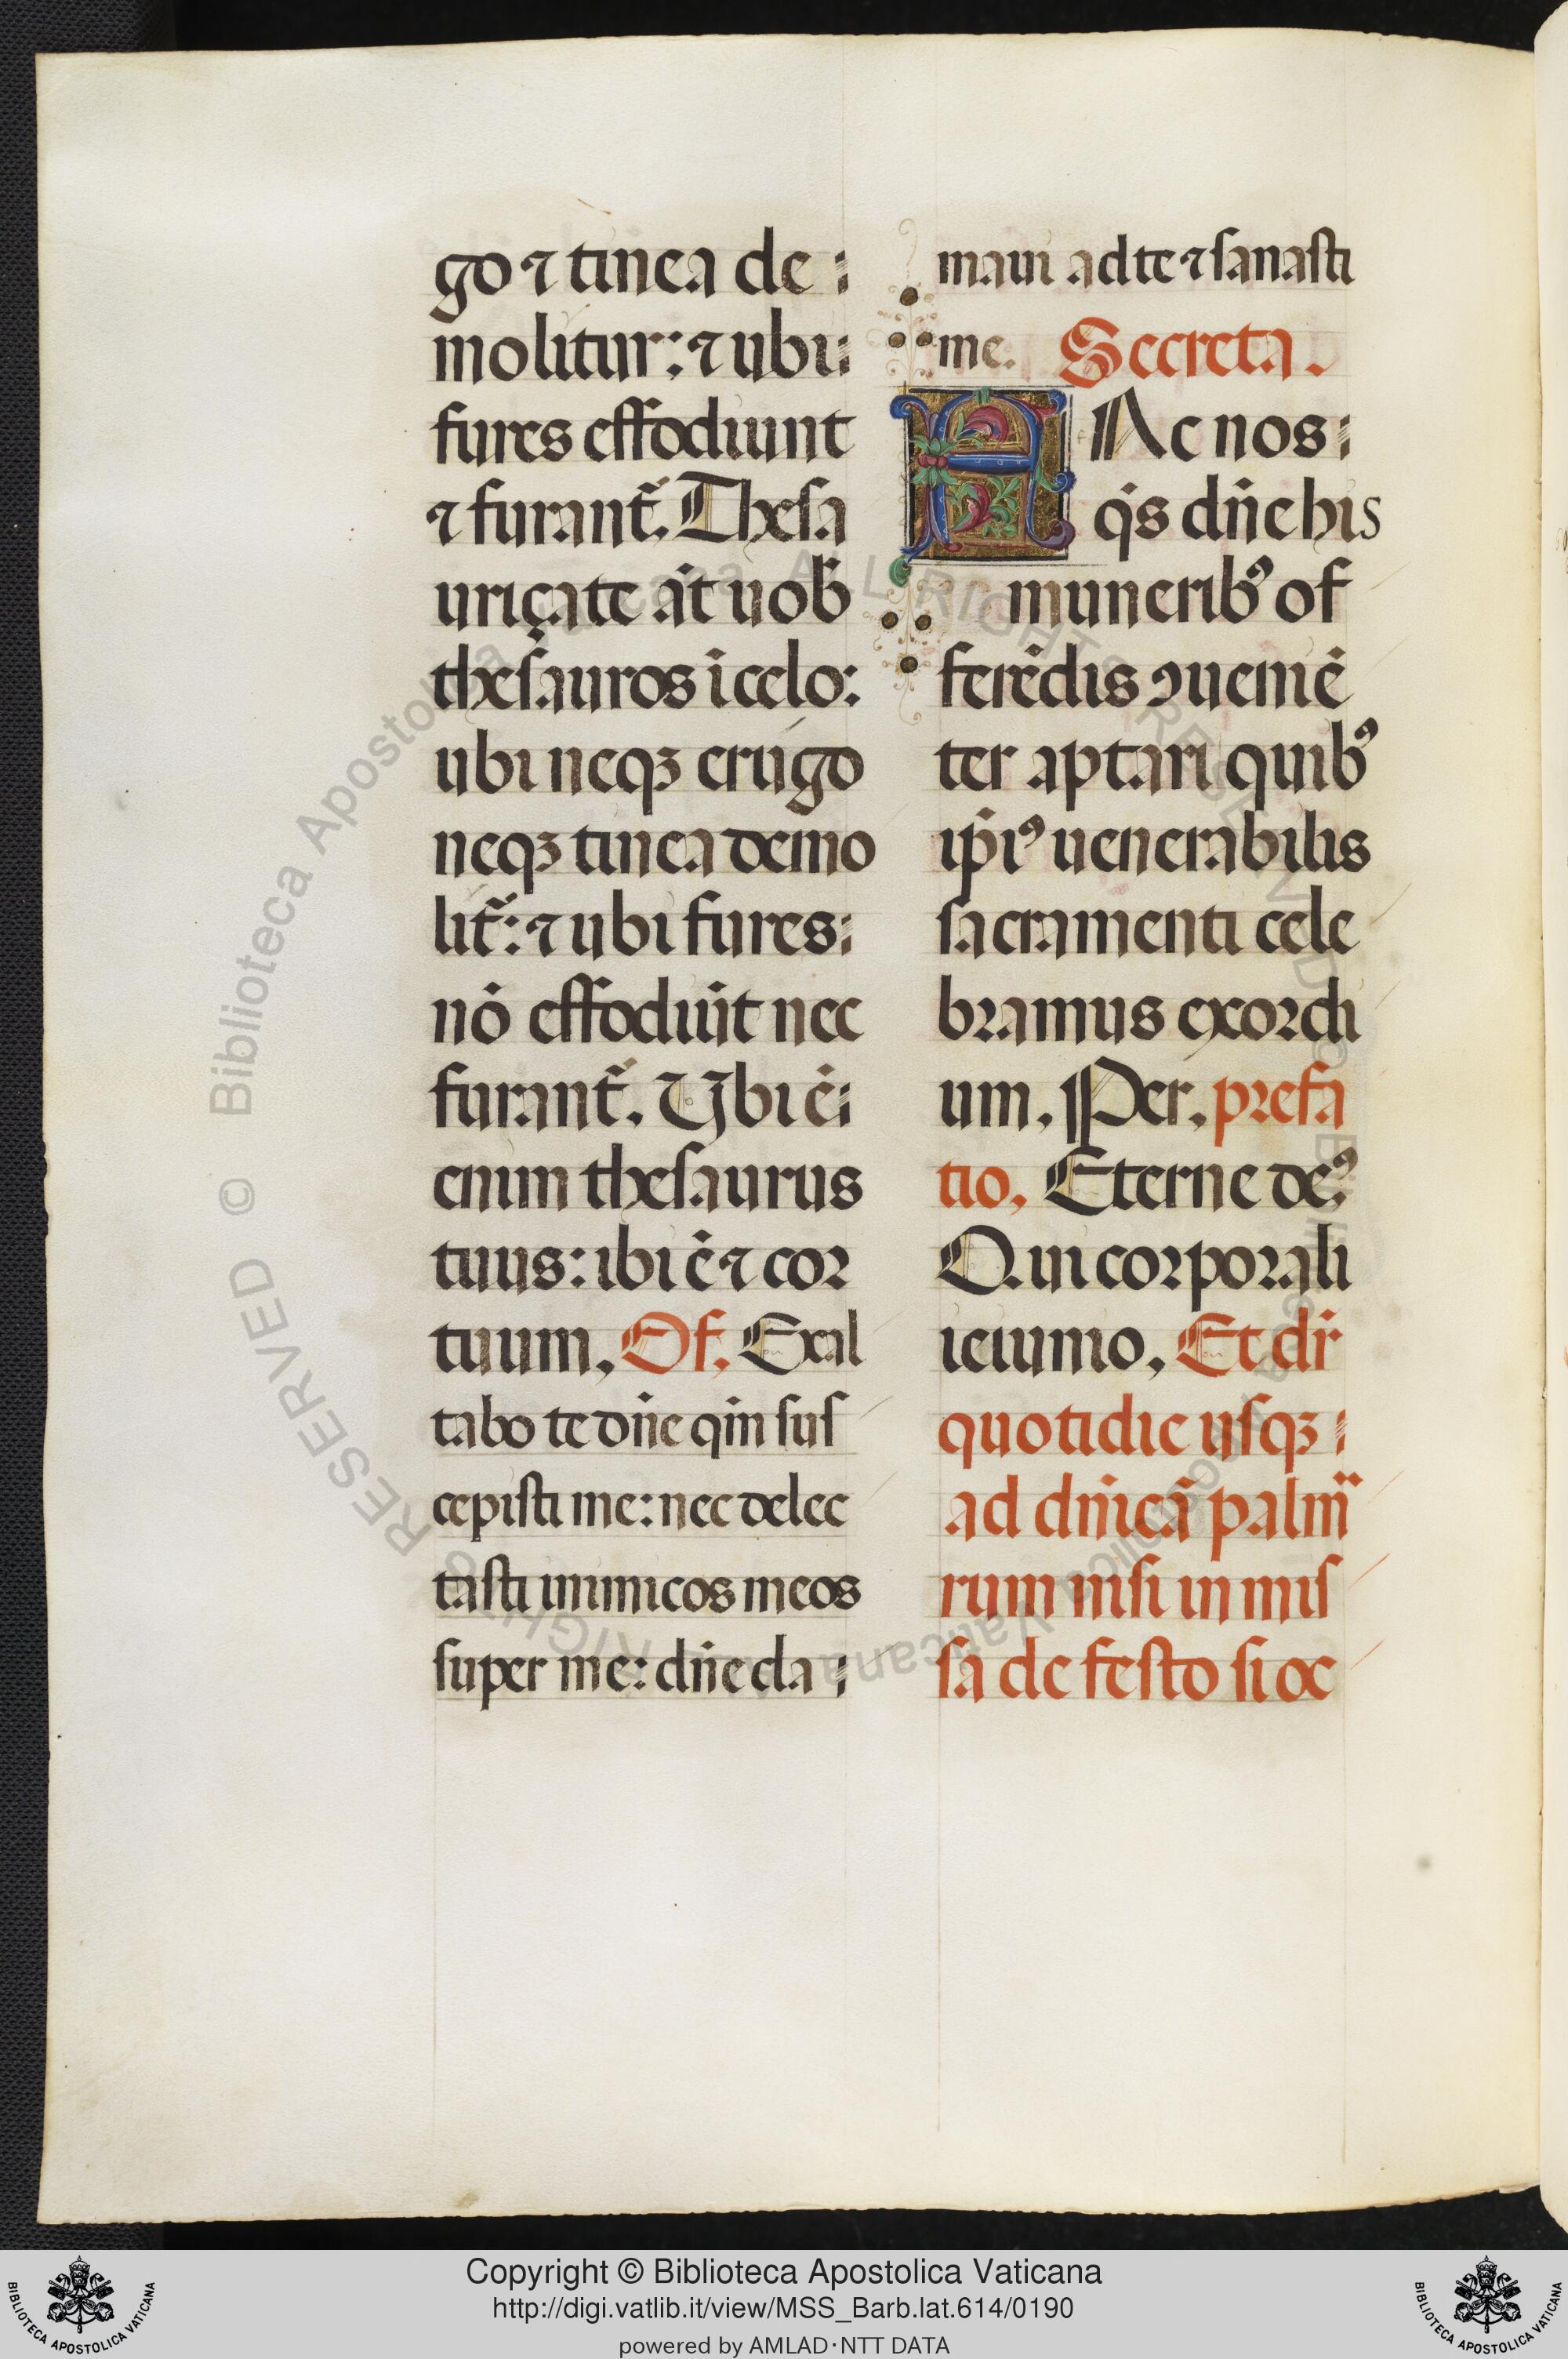 go ⁊ tinea de
molitur: ⁊ ubi
fures effodiunt
⁊ furant̃. Thesa
uriçate āt uob̄
thesauros ī celo:
ubi neqꝫ erugo
neqꝫ tinea demo
lit̃: ⁊ ubi fures
nō effodiūt nec
furant̃. Vbi ē
enim thesaurus
tuus: ibi ē ⁊ cor
tuum, Of. Exal
tabo te dñe qm̄ sus
cepisti me: nec delec
tasti inimicos meos
super me: dñe cla
maui ad te ⁊ sanasti
me. Secreta.
FAc nos
q̄s dñe his
muneribꝰ of
ferēdis ꝯueniē
ter aptari quibꝰ
ip̄iꝰ uenerabilis
sacramenti cele
bramus exordi
um, Per, prefa
tio, Eterne deꝰ,
Q.ui corporali
ieiunio, Et dr̄
quotidie usqꝫ
ad dn̄icā palm̈
rum nisi in mis
sa de festo si oc
Copyright © Biblioteca Apostolica Vaticana
http://digi.vatlib.it/view/MSS_Barb.lat.614/0190
powered by AMLAD·NTT DATA
BIBLIOTECA APOSTOLICA VATICANA
BIBLIOTECA APOSTOLICA VATICANA
© Biblioteca Apostolica Vaticana ALL RIGHTS RESERVED